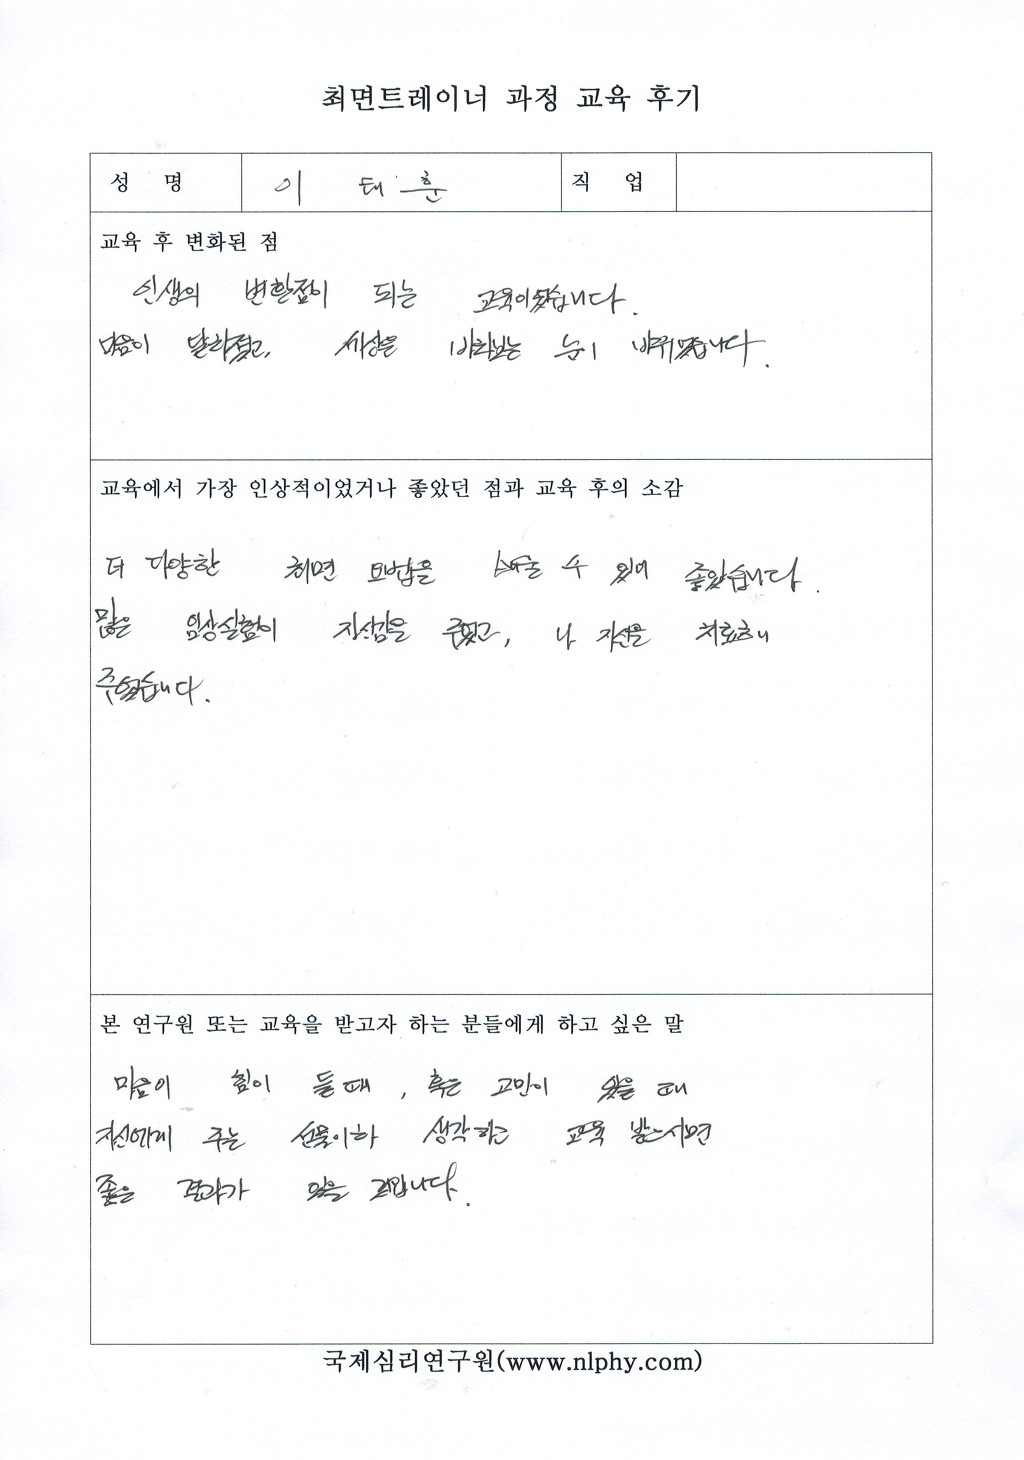 최면트레이너 과정 교육 후기
성 명 이 태 훈 직 업
교육 후 변화된 점
인생의 변환점이 되는 교육이었습니다.
마음이 달라졌고, 세상을 바라보는 눈이 바뀌었습니다.
교육에서 가장 인상적이었거나 좋았던 점과 교육 후의 소감
더 다양한 최면 방법을 배울 수 있어 좋았습니다.
많은 임상실험이 자신감을 주었고, 나 자신을
주었습니다.
본 연구원 또는 교육을 받고자 하는 분들에게 하고 싶은 말
마음이 힘이 들 때, 혹은 고민이 있을 때
자신에게 주는 선물이라 생각하고 교육 받으시면
좋은 결과가 있을 것입니다.
국제심리연구원(www.nlphy.com)